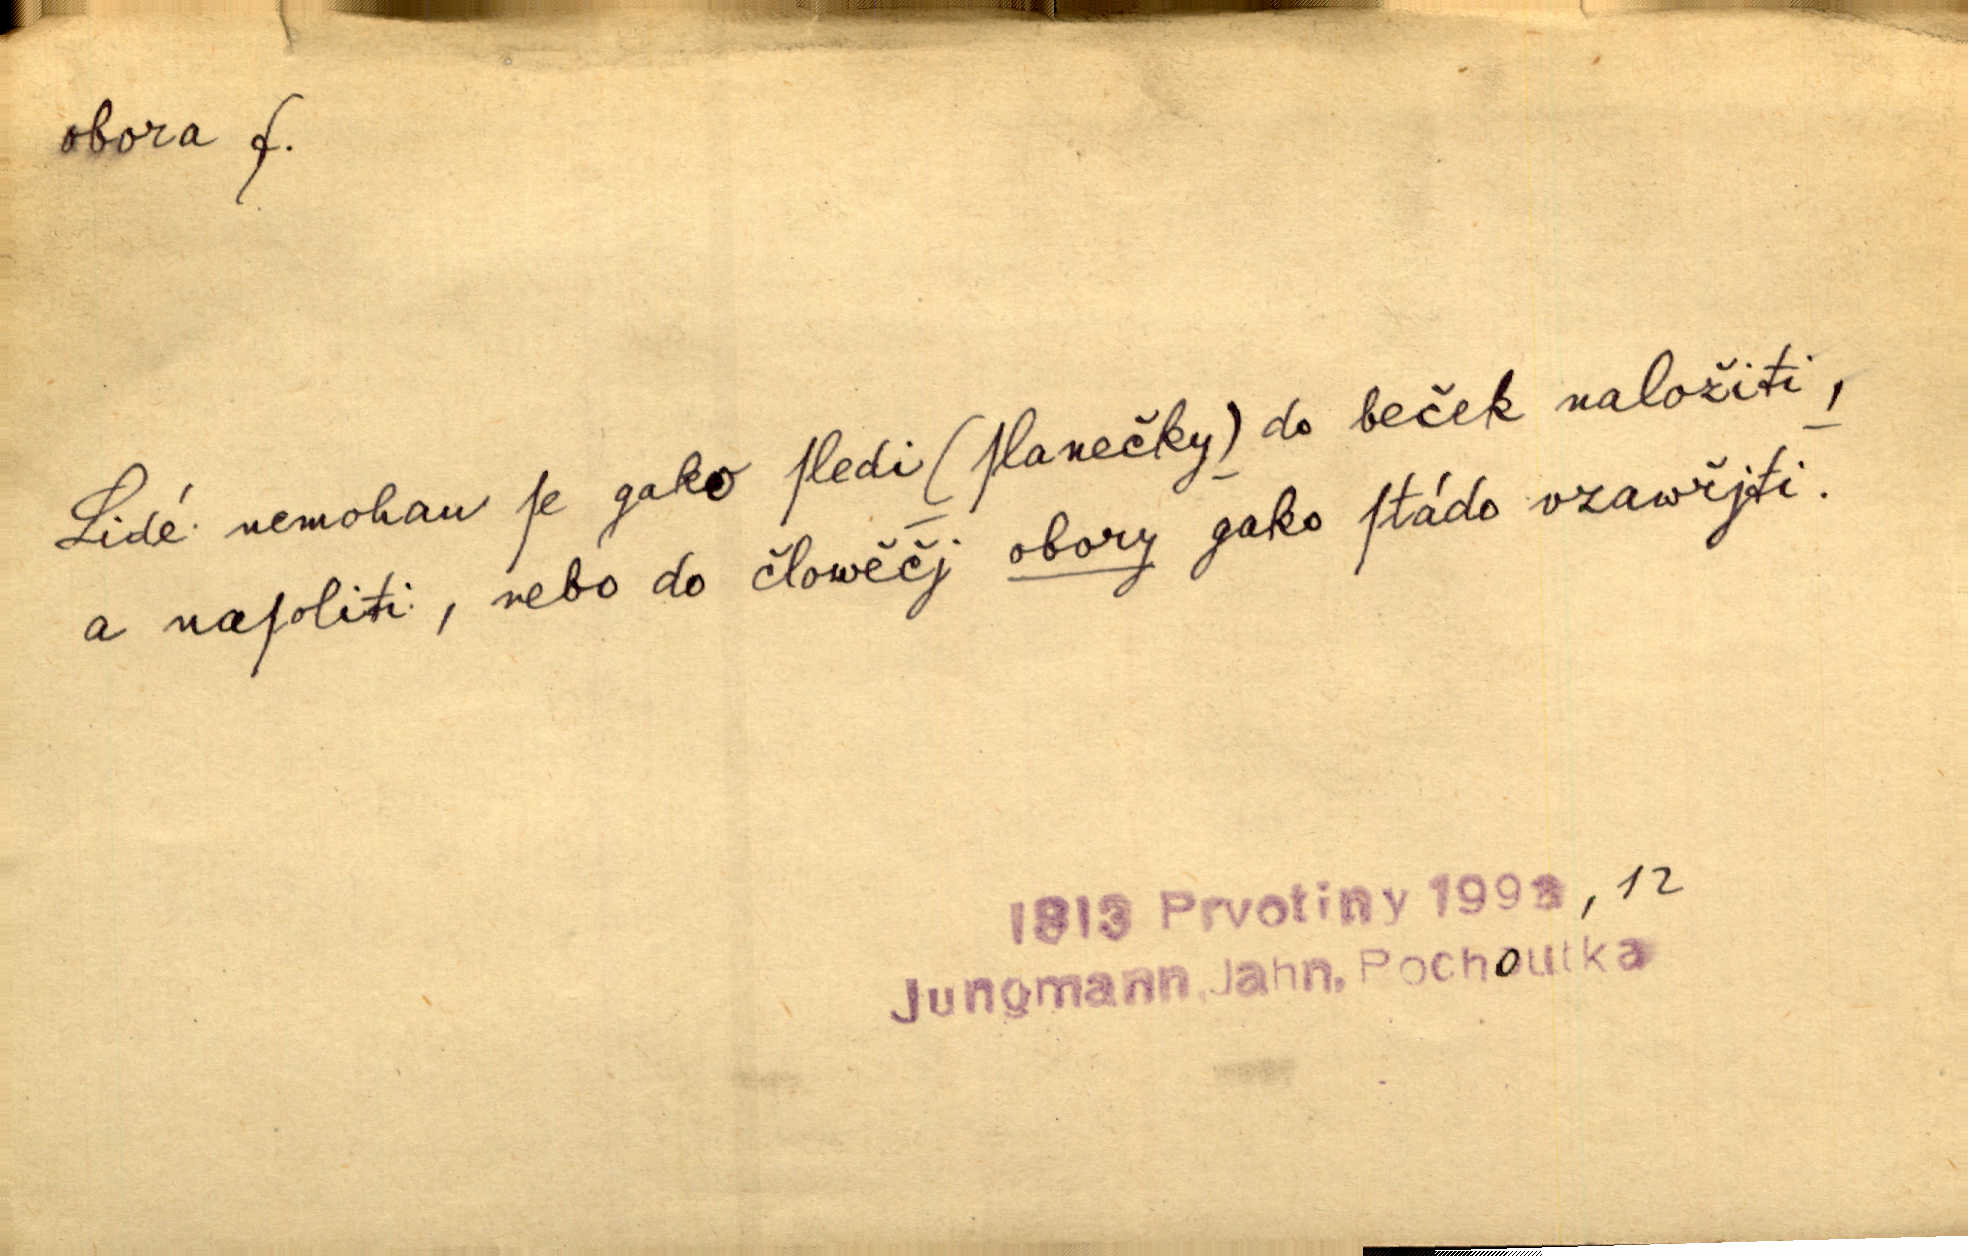 obora f.
Lidé nemohau ſe gako ſledi (ſlanečky) do beček naložiti,
a naſoliti, nebo do člowěčj obory gako ſtádo vzawřjti.
1813 Prvotiny 199a, 12
Jungmann, Jahn, Pochoutka